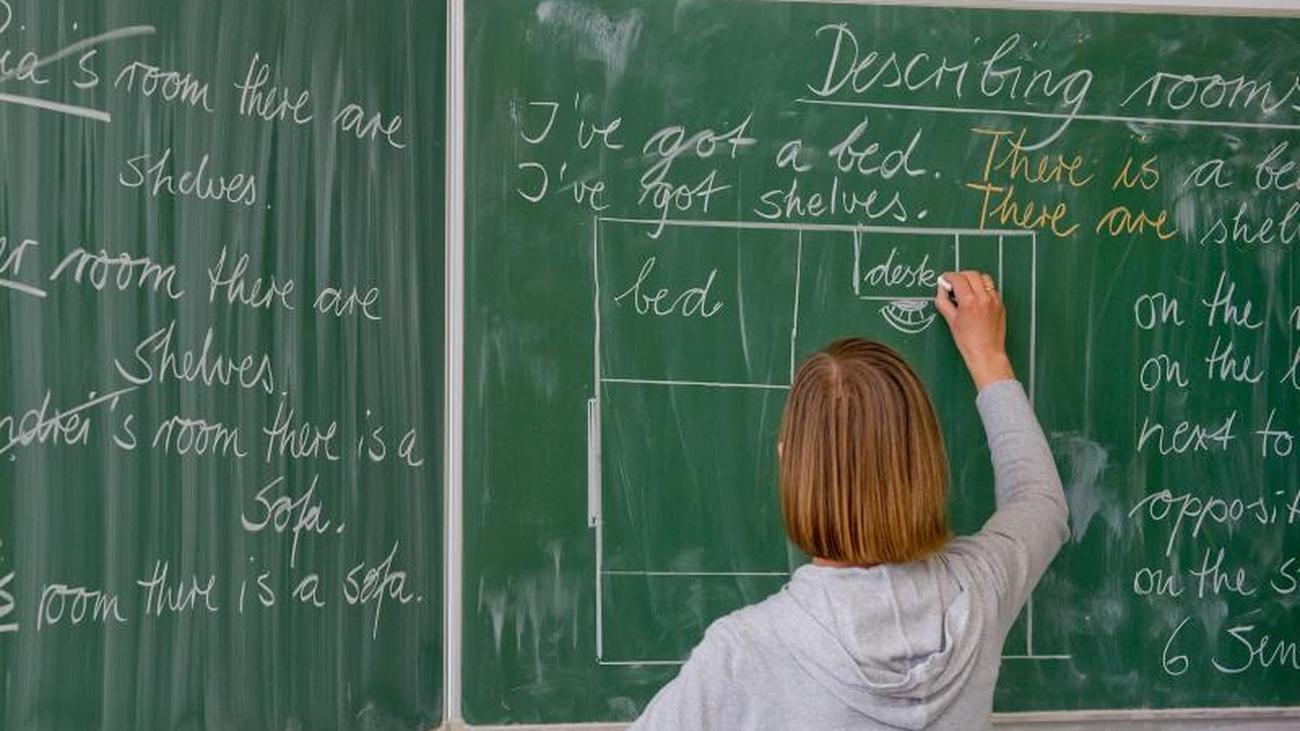 room there are
shelves.
room there are
shelves.
room there is a
sofa.
room there is a sofa.
Describing rooms
I've got a bed. There is a
I've got shelves. There are
bed
desk
on the
on the
next to
on the
6